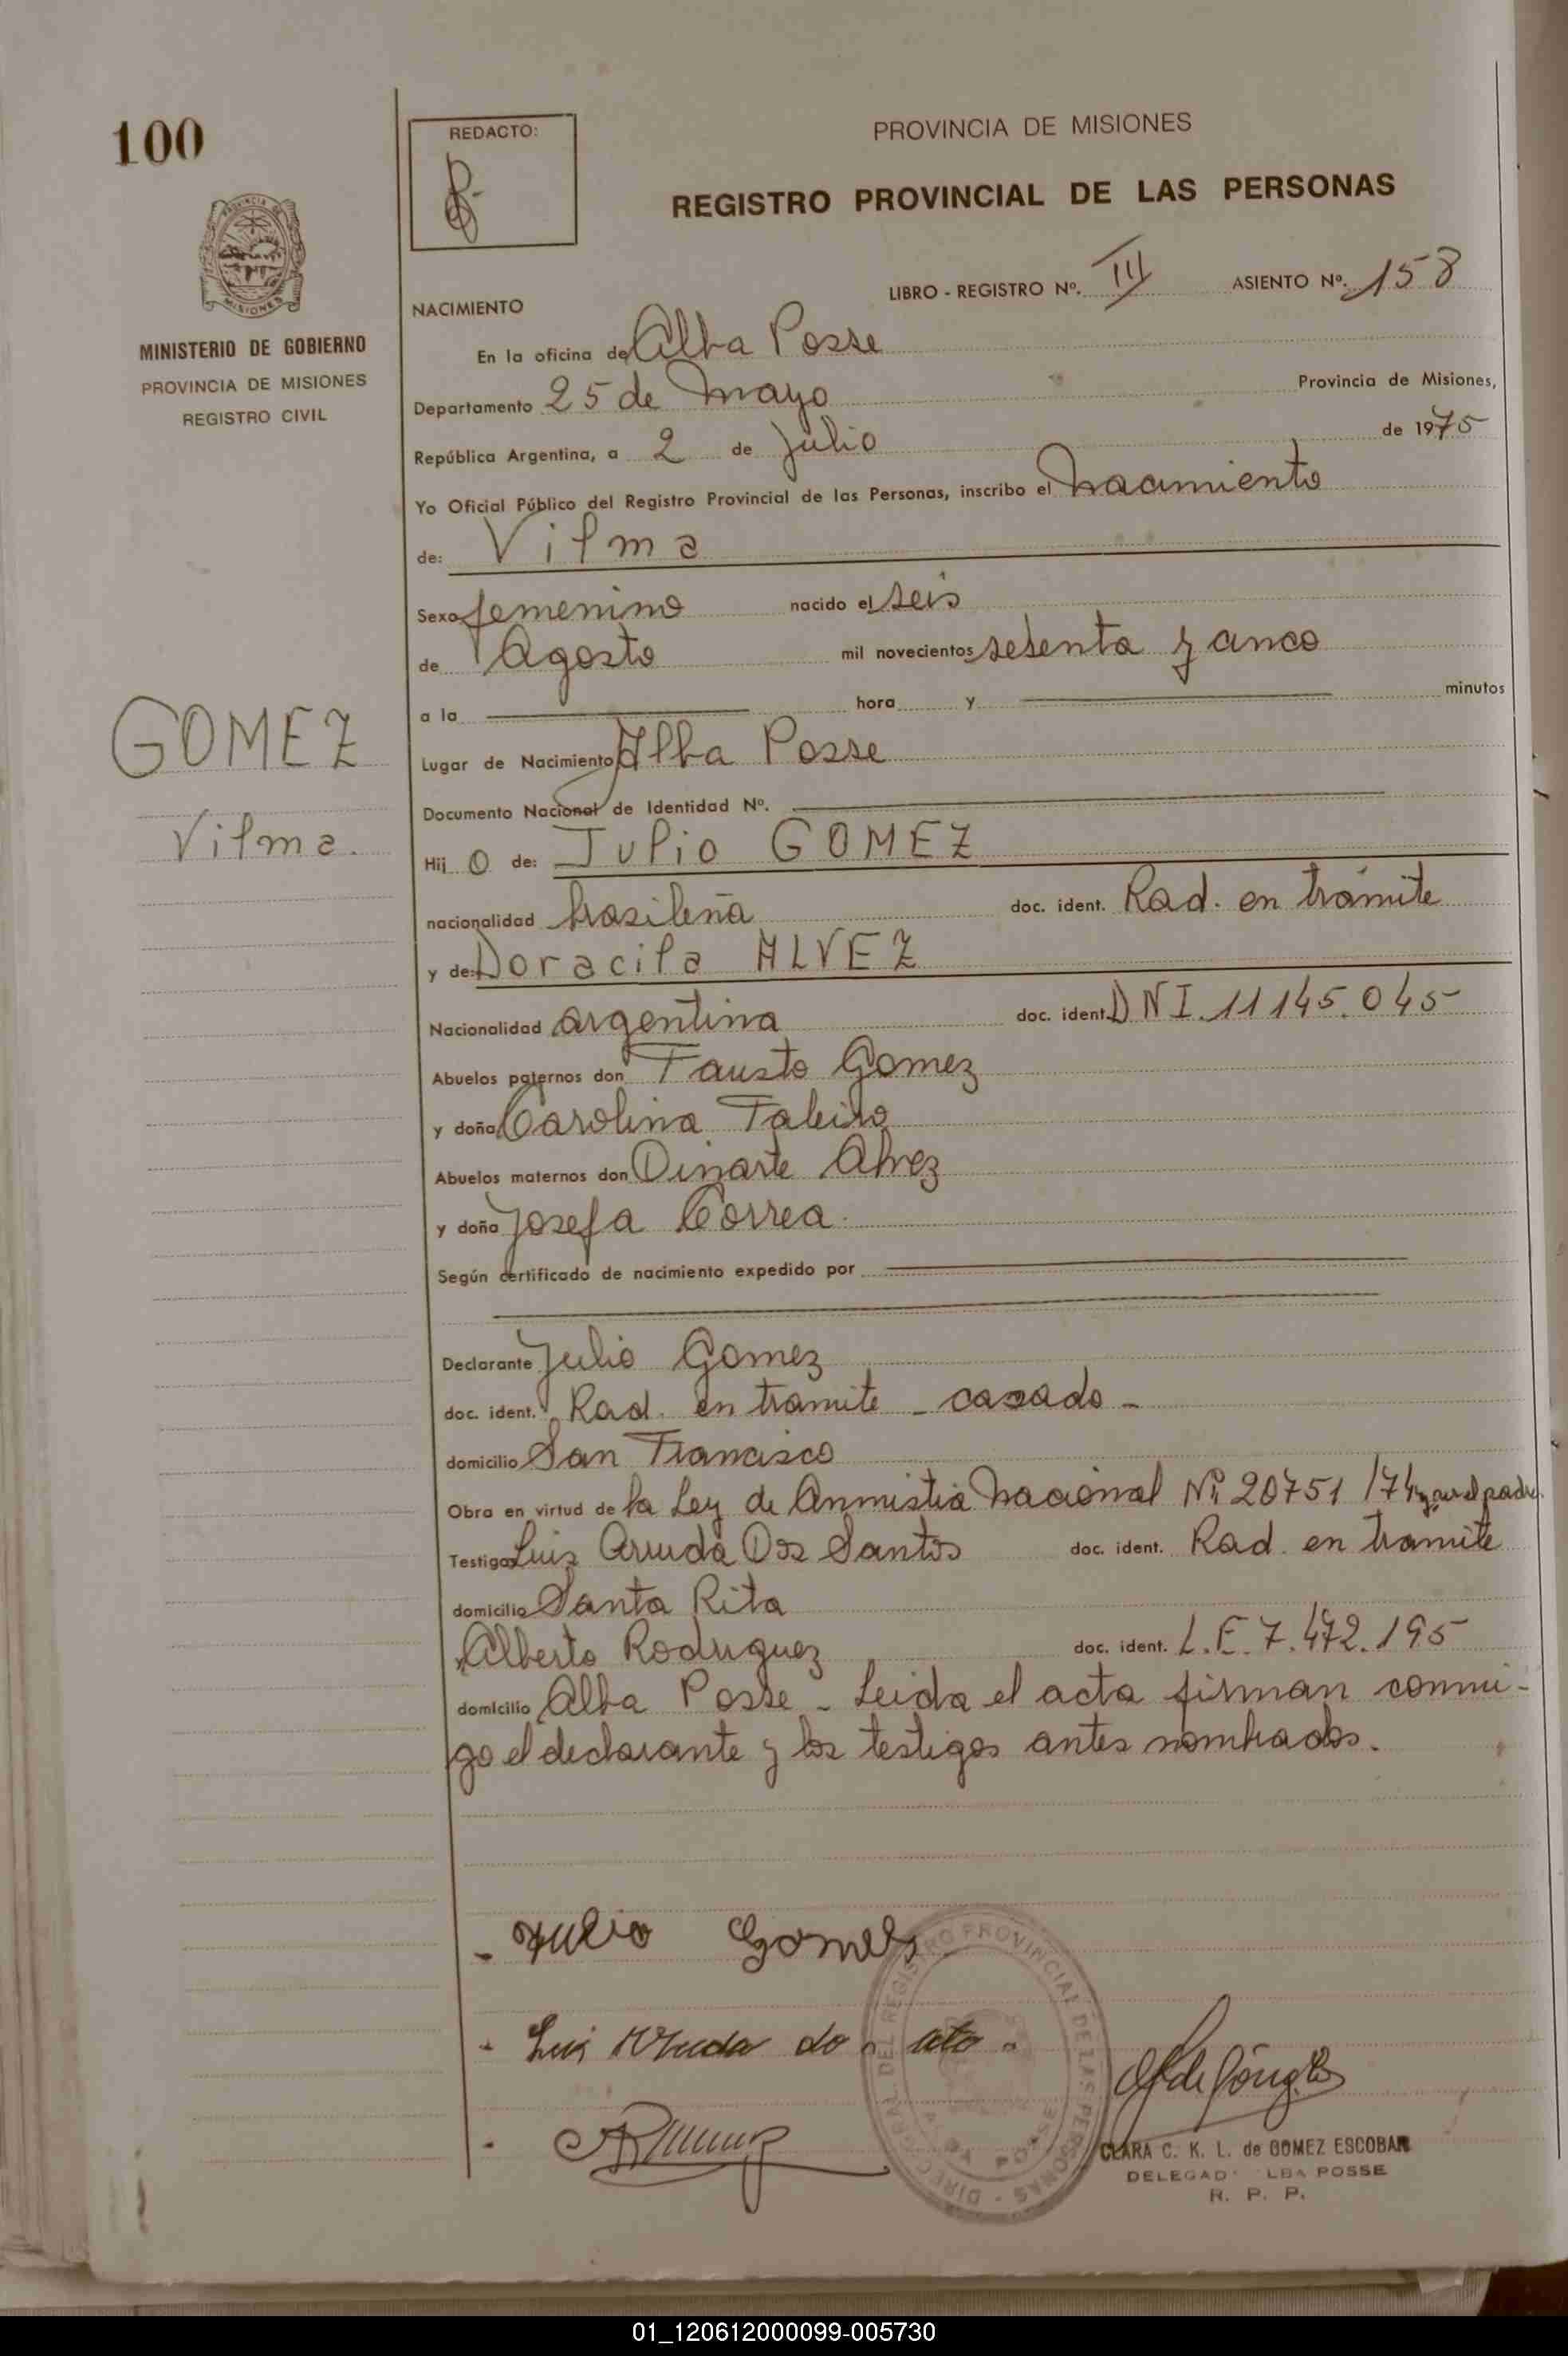 100
REDACTO:
PROVINCIA DE MISIONES
REGISTRO PROVINCIAL DE LAS PERSONAS
LIBRO - REGISTRO Nº. III ASIENTO Nº. 158
PROVINCIA DE
MISIONES
MINISTERIO DE GOBIERNO
PROVINCIA DE MISIONES
REGISTRO CIVIL
NACIMIENTO
En la oficina de Alba Posse
Departamento 25 de Mayo Provincia de Misiones,
República Argentina, a 2 de Julio de 1975
Yo Oficial Público del Registro Provincial de las Personas, inscribo el nacimiento
de: Vilma
Sexo femenino nacido el seis
de Agosto mil novecientos setenta y cinco
a la hora y minutos
GOMEZ
Vilma.
Lugar de Nacimiento Alba Posse
Documento Nacional de Identidad Nº.
Hij o de: Julio GOMEZ
nacionalidad brasileña doc. ident. Rad. en trámite
y de: Doracila ALVEZ
Nacionalidad argentina doc. ident. DNI. 11145.045
Abuelos paternos don Fausto Gomez
y doña Carolina
Abuelos maternos don Dinarte Alvez
y doña Josefa Correa.
Según certificado de nacimiento expedido por
Declarante Julio Gomez
doc. ident. Rad. en tramite - casado -
domicilio San Francisco
Obra en virtud de la Ley de Anmistia Nacional Nº 20751 /74 y por el padre.
Testigos Luis Arruda Dos Santos doc. ident. Rad. en tramite
domicilio Santa Rita
Alberto Rodriguez doc. ident. L.E. 7.472.195
domicilio Alba Posse - Leida el acta firman conmi-
go el declarante y los testigos antes nombrados.
- Julio Gomes
- Luis Arruda do
DIREC. GRAL. DEL REGISTRO PROVINCIAL DE LAS PERSONAS -
ALBA POSSE
CLARA C. K. L. de GOMEZ ESCOBAR
DELEGAD LBA POSSE
R. P. P.
01_120612000099-005730